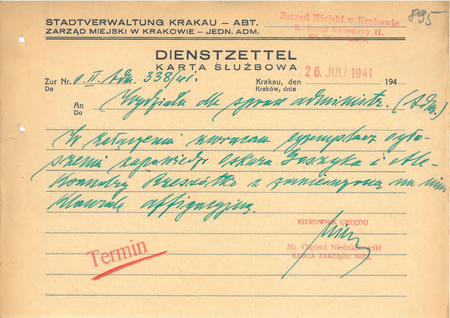 STADTVERWALTUNG KRAKAU – ABT.
ZARZĄD MIEJSKI W KRAKOWIE – JEDN. ADM.
Zarząd Miejski w Krakowie
895
DIENSTZETTEL
KARTA SŁUŻBOWA
Zur Nr. II. Adm. 338/41.
Do
Krakau, den
Kraków, dnia
26. JULI 1941
194
An
Do
Wydziału dla spraw administr. (Adm.)
W załączeniu zwracam egzemplarz ogło-
szenia zapowiedzi Oskara i Ale-
ksandry z zamieszczoną na nim
klauzulą afiksacyjną.
KIEROWNIK URZĘDU
Mr. Olgierd Niedziałkowski
RADCA ZARZĄDU MIEJ.
Termin